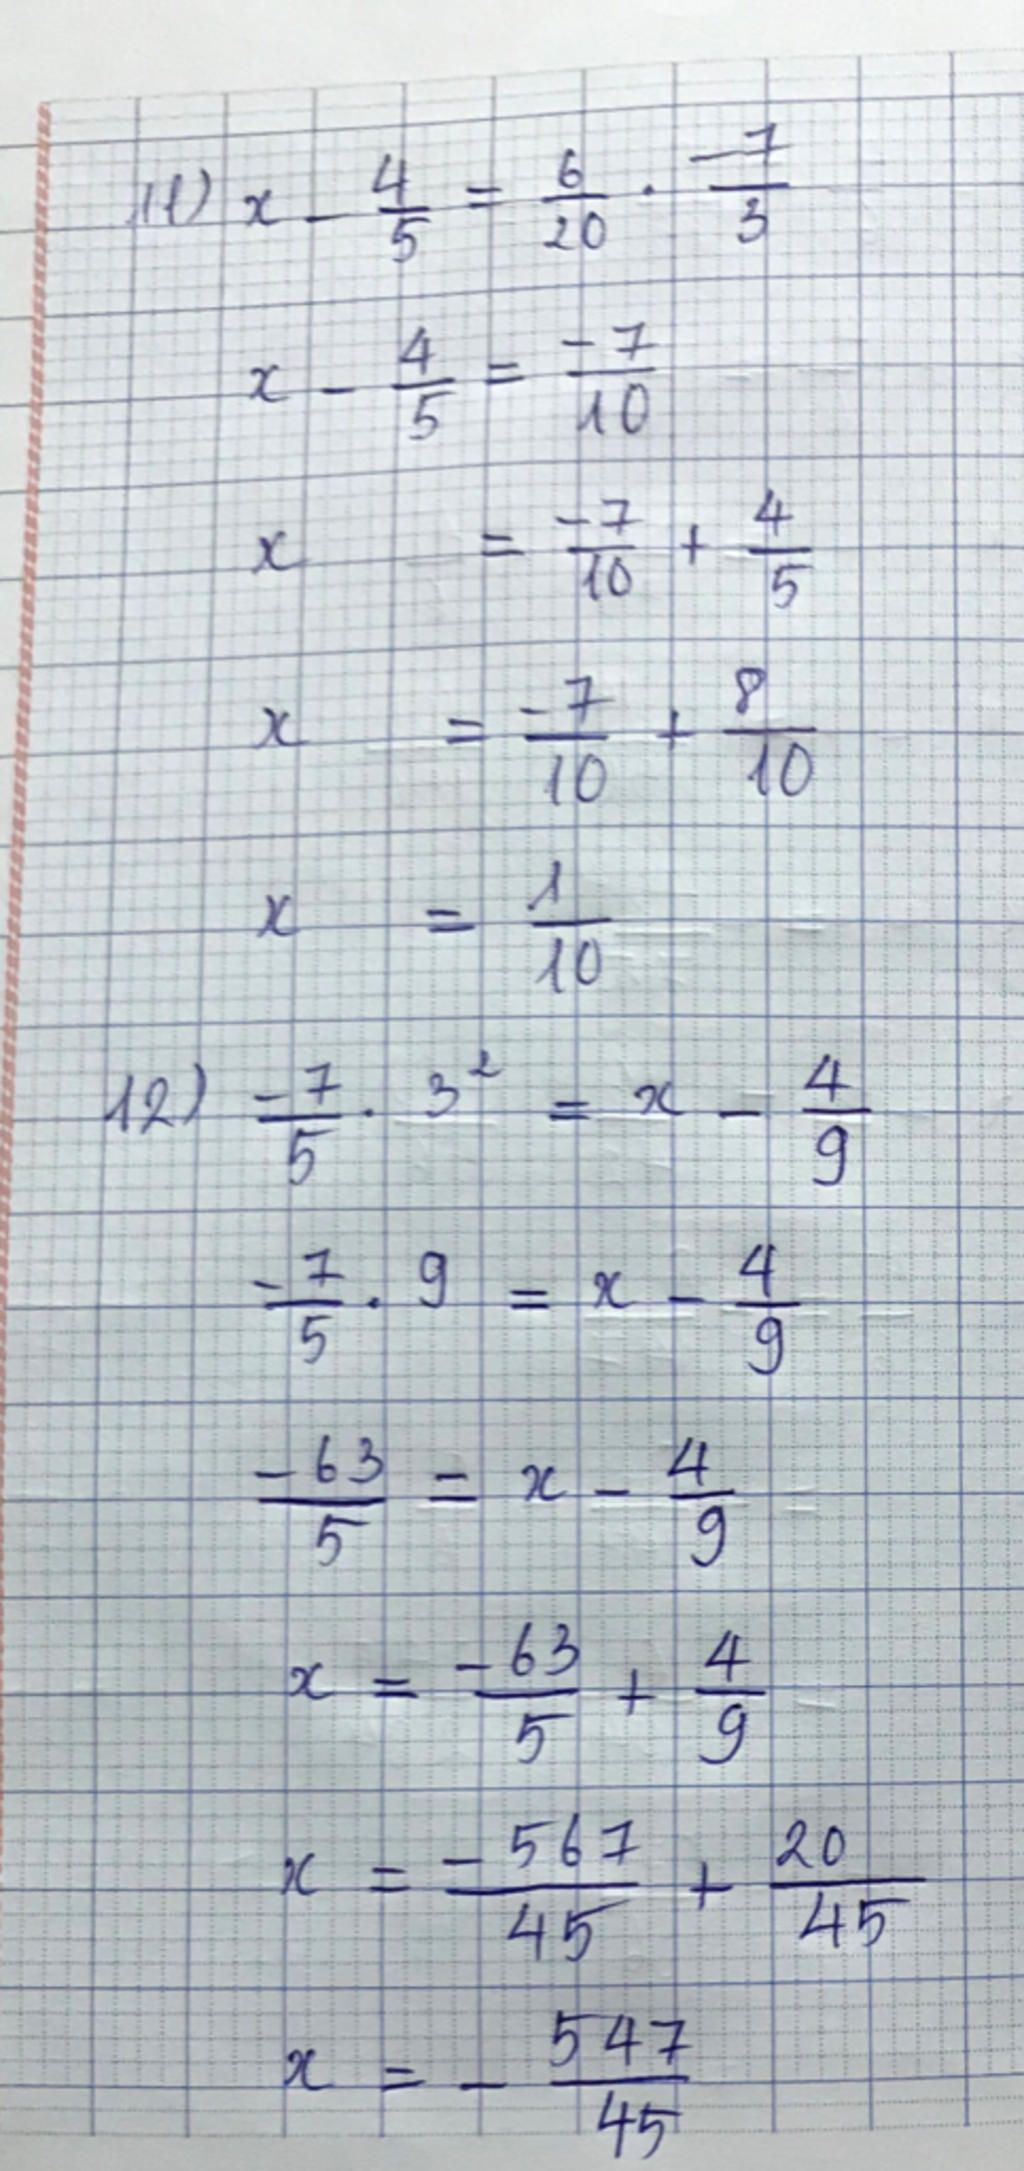 11) x - 4/5 = 6/20 . -7/3
x - 4/5 = -7/10
x = -7/10 + 4/5
x = -7/10 + 8/10
x = 1/10
12) -7/5 . 3² = x - 4/9
-7/5 . 9 = x - 4/9
-63/5 = x - 4/9
x = -63/5 + 4/9
x = -567/45 + 20/45
x = - 547/45